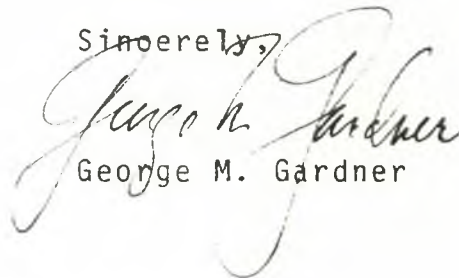 Sincerely,
George M. Gardner
George M. Gardner